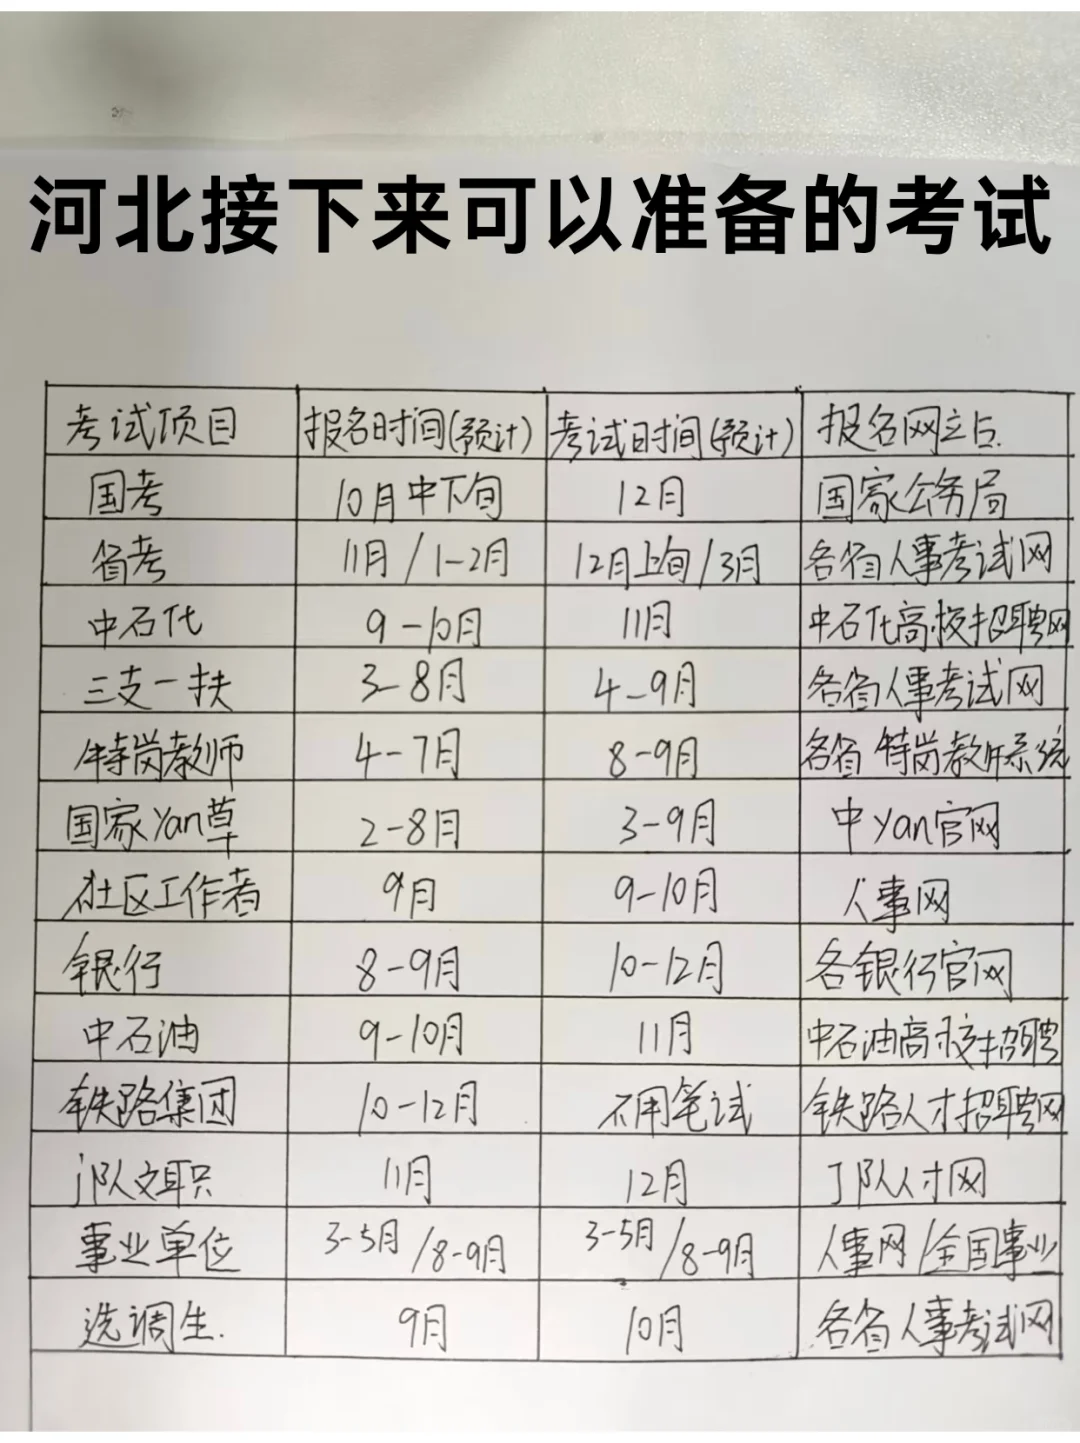 河北接下来可以准备的考试
考试项目 报名时间(预计) 考试时间(预计) 报名网站
国考 10月中下旬 12月 国家公务局
省考 11月/1-2月 12月上旬/3月 各省人事考试网
中石化 9-10月 11月 中石化高校招聘网
三支一扶 3-8月 4-9月 各省人事考试网
特岗教师 4-7月 8-9月 各省特岗教师系统
国家yan草 2-8月 3-9月 中yan官网
社区工作者 9月 9-10月 人事网
银行 8-9月 10-12月 各银行官网
中石油 9-10月 11月 中石油高校招聘
铁路集团 10-12月 不用笔试 铁路人才招聘网
j队文职 11月 12月 J队人才网
事业单位 3-5月/8-9月 3-5月/8-9月 人事网/全国事业
选调生. 9月 10月 各省人事考试网